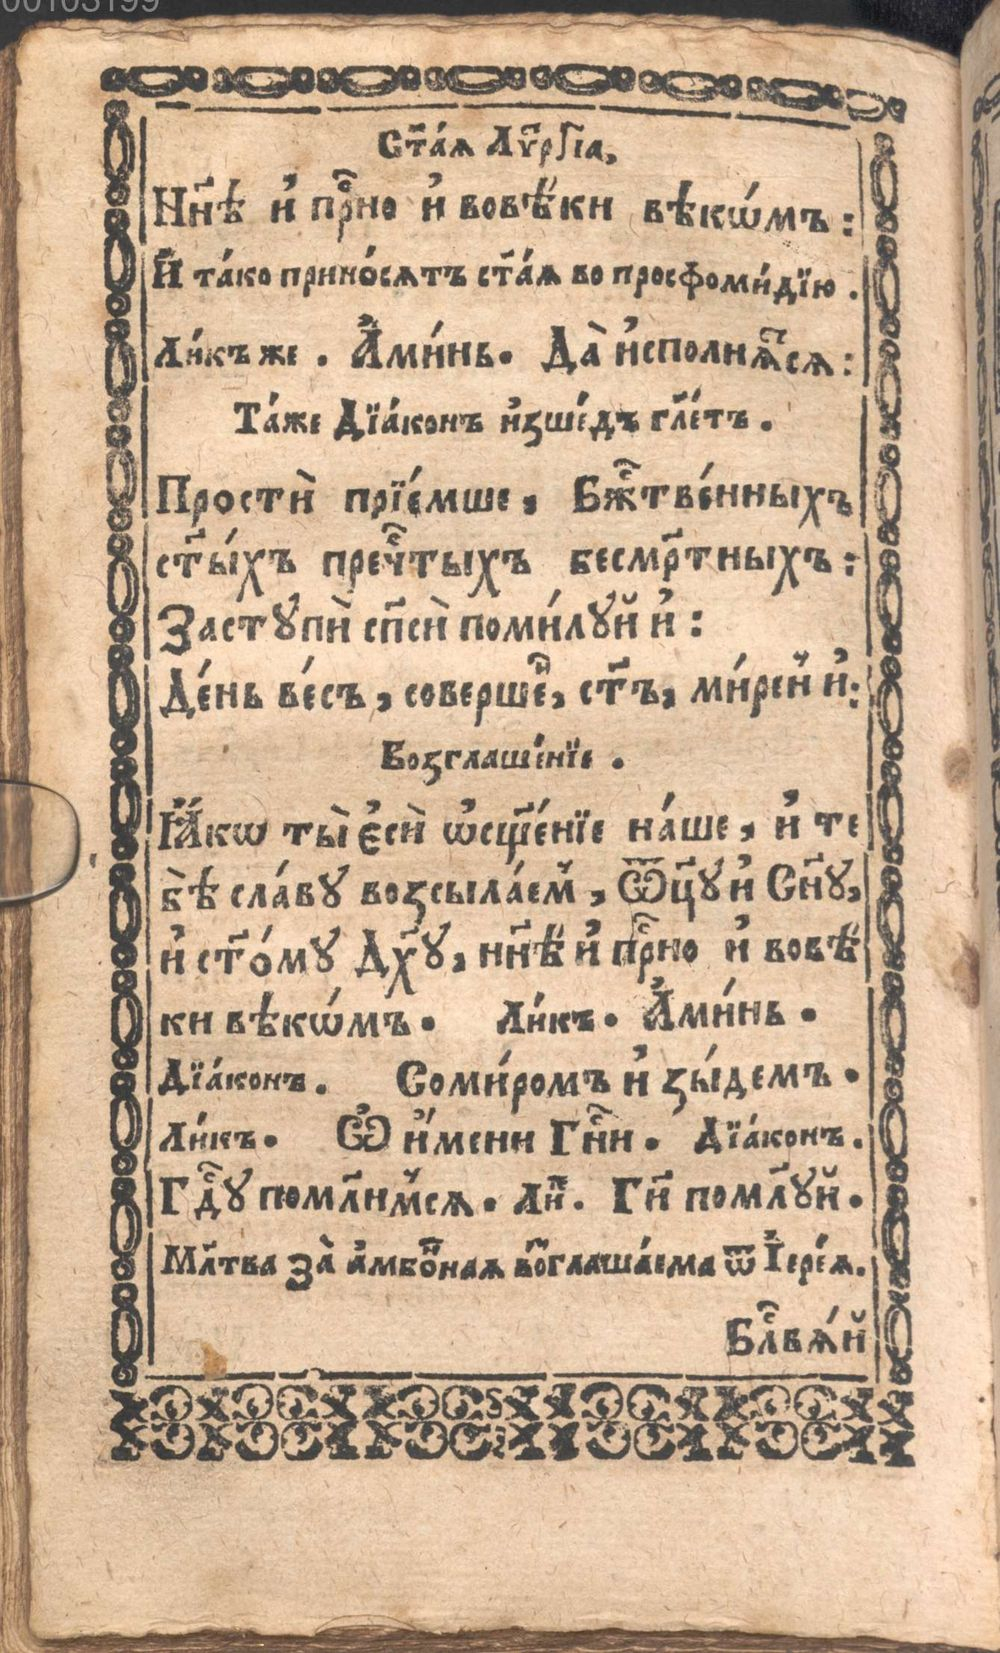 00103199
Ст҃а́ѧ Лꙋ҃ргїа,
Нн҃ѣ и҆ прⷭ҇но и҆ вовѣ́ки вѣкѡ́мъ :
И҆ та́ко прино́сѧтъ ст҃а́ѧ во просфоми́дїю .
Ли́къ же . А҆ми́нь. Да̀ и҆сполнѧ́тсѧ :
Та́же Дїа́конъ и҆зше́дъ гл҃етъ .
Прости̂ прїе́мше , Бжⷭ҇тве́нныхъ
ст҃ы́хъ пречⷭ҇тыхъ бесмр҃тныхъ :
Застꙋпѝ сп҃сѝ поми́лꙋй и҆ :
Де́нь ве́съ , соверше҃н , ст҃ъ , ми́рен̾ и҆ :
Возглаше́нїе .
Ꙗ҆́кѡ ты̀ є҆сѝ ѡ҆сщ҃е́нїе на́ше , и҆ те
бѣ̀ сла́вꙋ возсыла́ем̾ , Ѿц҃ꙋ и҆ Сн҃ꙋ ,
и҆ ст҃о́мꙋ Дх҃ꙋ , нн҃ѣ и҆ прⷭ҇но и҆ вовѣ́
ки вѣкѡ́мъ . Ли́къ . А҆ми́нь .
Дїа́конъ . Соми́ромъ и҆ зы́демъ .
Ли́къ . Ѽ и҆́мени Гнⷭ҇и . Дїа́конъ .
Гдⷭ҇ꙋ помл҃им̾сѧ . Ли҃ . Гн҃ помл҃ꙋй .
Мл҃тва за̀ а҆мбо́наѧ во҃глаша́ема ѿ І҆ере́ѧ .
Блⷭ҇вѧ́й